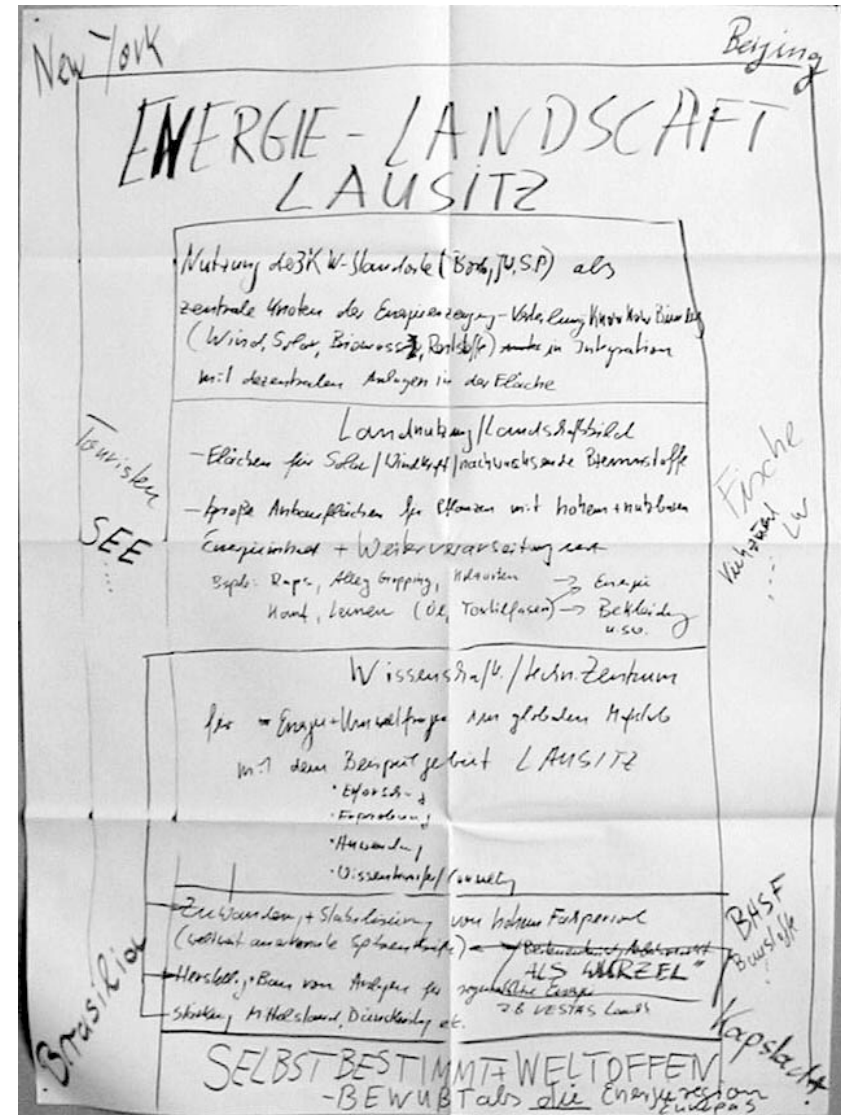 New York
Beijing
ENERGIE-LANDSCHAFT
LAUSITZ
Nutzung der 3 KW-Standorte (Boxb, JW, S.P) als
zentrale Knoten der Energieerzeugung-Verteilung
(Wind, Solar, Biomasse, Reststoffe) in Integration
mit dezentralen Anlagen in der Fläche
Landnutzung/Landschaftsbild
-Flächen für Solar/Windkraft/nachwachsende Brennstoffe
-große Anbauflächen für Pflanzen mit hohem + nutzbaren
Energieinhalt + Weiterverarbeitung
Bsple: Raps, Alley Cropping, → Energie
Hanf, Leinen (Öl, Textilfasern) → Bekleidung
u.s.w.
Touristen
SEE
....
Fische
Viehzucht
.... LW
Wissenschaftl./techn. Zentrum
für Energie+Umweltfragen im globalen Maßstab
mit dem Beispielgebiet LAUSITZ
·Erforschung
·Erprobung
·Anwendung
·Wissenstransfer/Consulting
Zuwanderung + Stabilisierung von hohem Fachpersonal
(weltweit anerkannte Spitzenkräfte)
ALS WURZEL"
Herstellung + Bau von Anlagen für regenerative Energie
z.B VESTAS Lauch
Stärkung Mittelstand, Dienstleistung etc.
BASF
Baustoffe
Brasilia
Kapstadt
SELBSTBESTIMMT + WELTOFFEN
-BEWUßT als die Energieregion
Europas